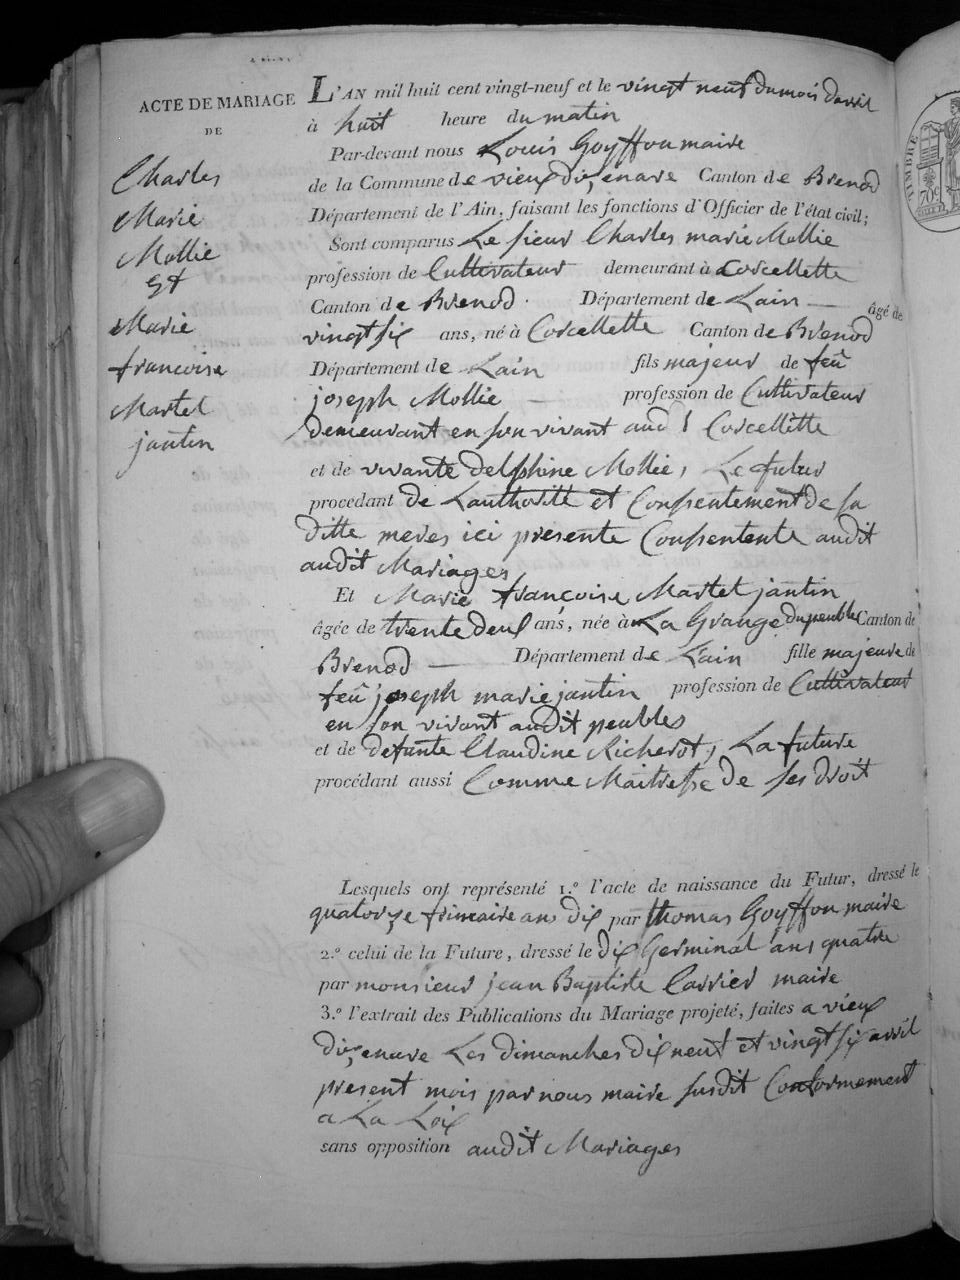 ACTE DE MARIAGE
DE
Charles
Marie
Mollie
Et
Marie
francoise
Martel
jantin
L'AN mil huit cent vingt-neuf et le vingt neuf du mois davril
à huit heure du matin
Par-devant nous Louis Goyffon maire
de la Commune de vieux dizenave Canton de Brenod
Département de l'Ain, faisant les fonctions d'Officier de l'état civil;
Sont comparus Le sieur Charles marie Mollie
profession de Cultivateur demeurant à Corcellette
Canton de Brenod Département de Lain âgé de
vingt six ans, né à Corcellette Canton de Brenod
Département de Lain fils majeur de feû
joseph Mollie profession de Cultivateur
demeurant en son vivant aud t Corcellette
et de vivante delphine Mollie, Le futur
procédant de Lauthoritté et Consentement de sa
ditte meres ici presente Consentente audit
audit Mariages
Et Marie françoise Martel jantin
âgée de trente deux ans, née à La Grange du peuble Canton de
Brenod Département de L'ain fille majeure de
feû joseph marie jantin profession de Cultivateur
en son vivant audit peubles
et de defunte Claudine Richerot, La future
procédant aussi Comme Maitresse de ses droit
Lesquels ont représenté 1.º l'acte de naissance du Futur, dressé le
quatorze frimaire ans dix par thomas Goyffon maire
2.º celui de la Future, dressé le dix Germinal ans quatre
par monsieur jean Baptiste Carrier maire
3.º l'extrait des Publications du Mariage projeté, faites a vieux
dizenave Les dimanches dix neuf et vingt six avril
present mois par nous maire susdit Conformement
a La Loix
sans opposition audit Mariages
TIMBRE
70c